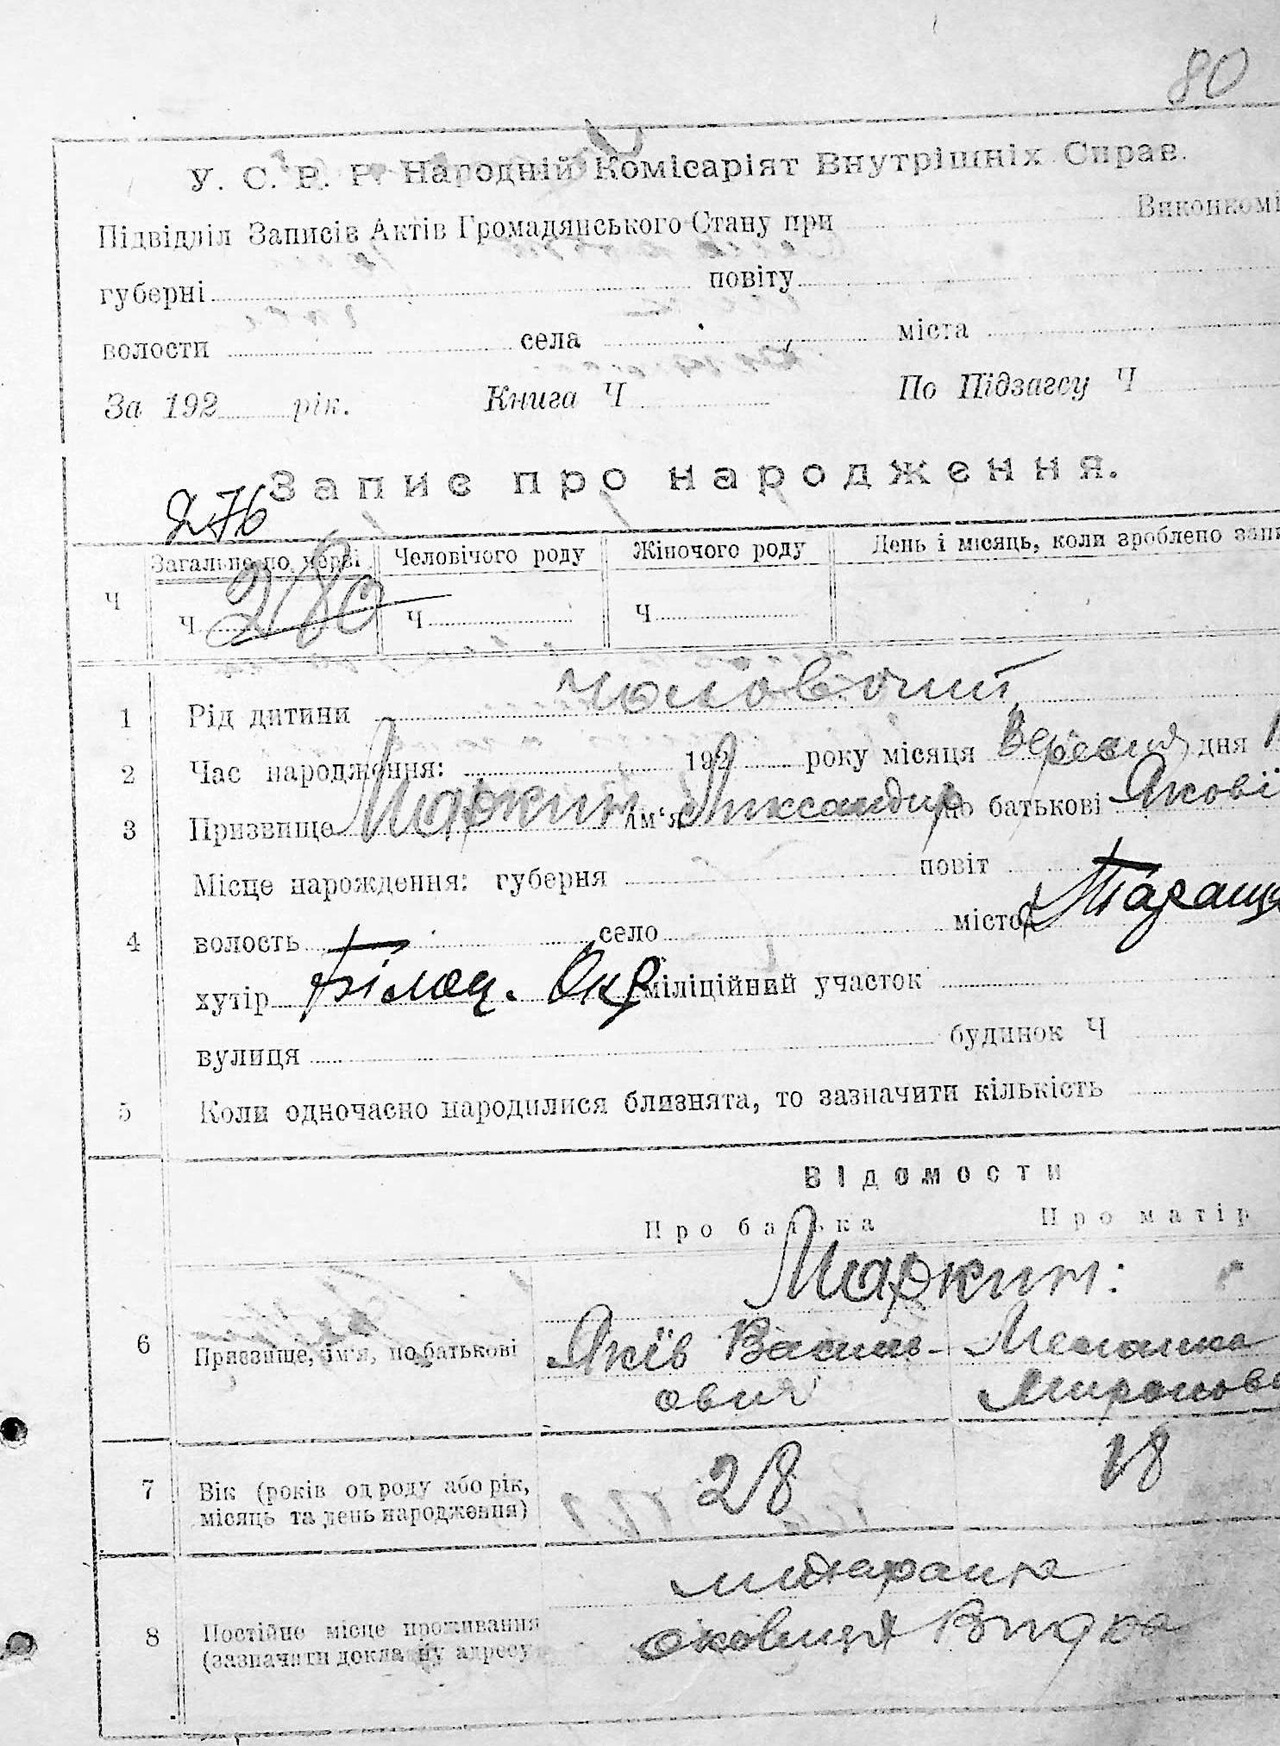 80
У. С. Р. Р. Народній Комісаріят Внутрішніх Справ.
Підвідділ Записів Актів Громадянського Стану при Виконкомі
губерні повіту
волости села міста
За 192 рік. Книга Ч По Підзагсу Ч
Запис про народження.
276
Загально по черзі Человічого роду Жіночого роду День і місяць, коли зроблено запи
Ч Ч 280 Ч Ч
1 Рід дитини Чоловочий
2 Час народження: 192 року місяця Вересня дня 1
3 Призвище Маркин Ім'я Олександр по батькові Якові
Місце нарождення: губерня повіт
4 волость село місто Тараща
хутір Білоц. Окр міліційний участок
вулиця будинок Ч
5 Коли одночасно народилися близнята, то зазначити кількість
Відомости
Про батька Про матір
Маркин:
6 Призвище, ім'я, по батькові Яків Василь- Меланка
ович Миронов
7 Вік (років од роду або рік, 28 18
місяць та день народження)
м Тараща
8 Постійне місце проживання околиця
(зазначити докладну адресу